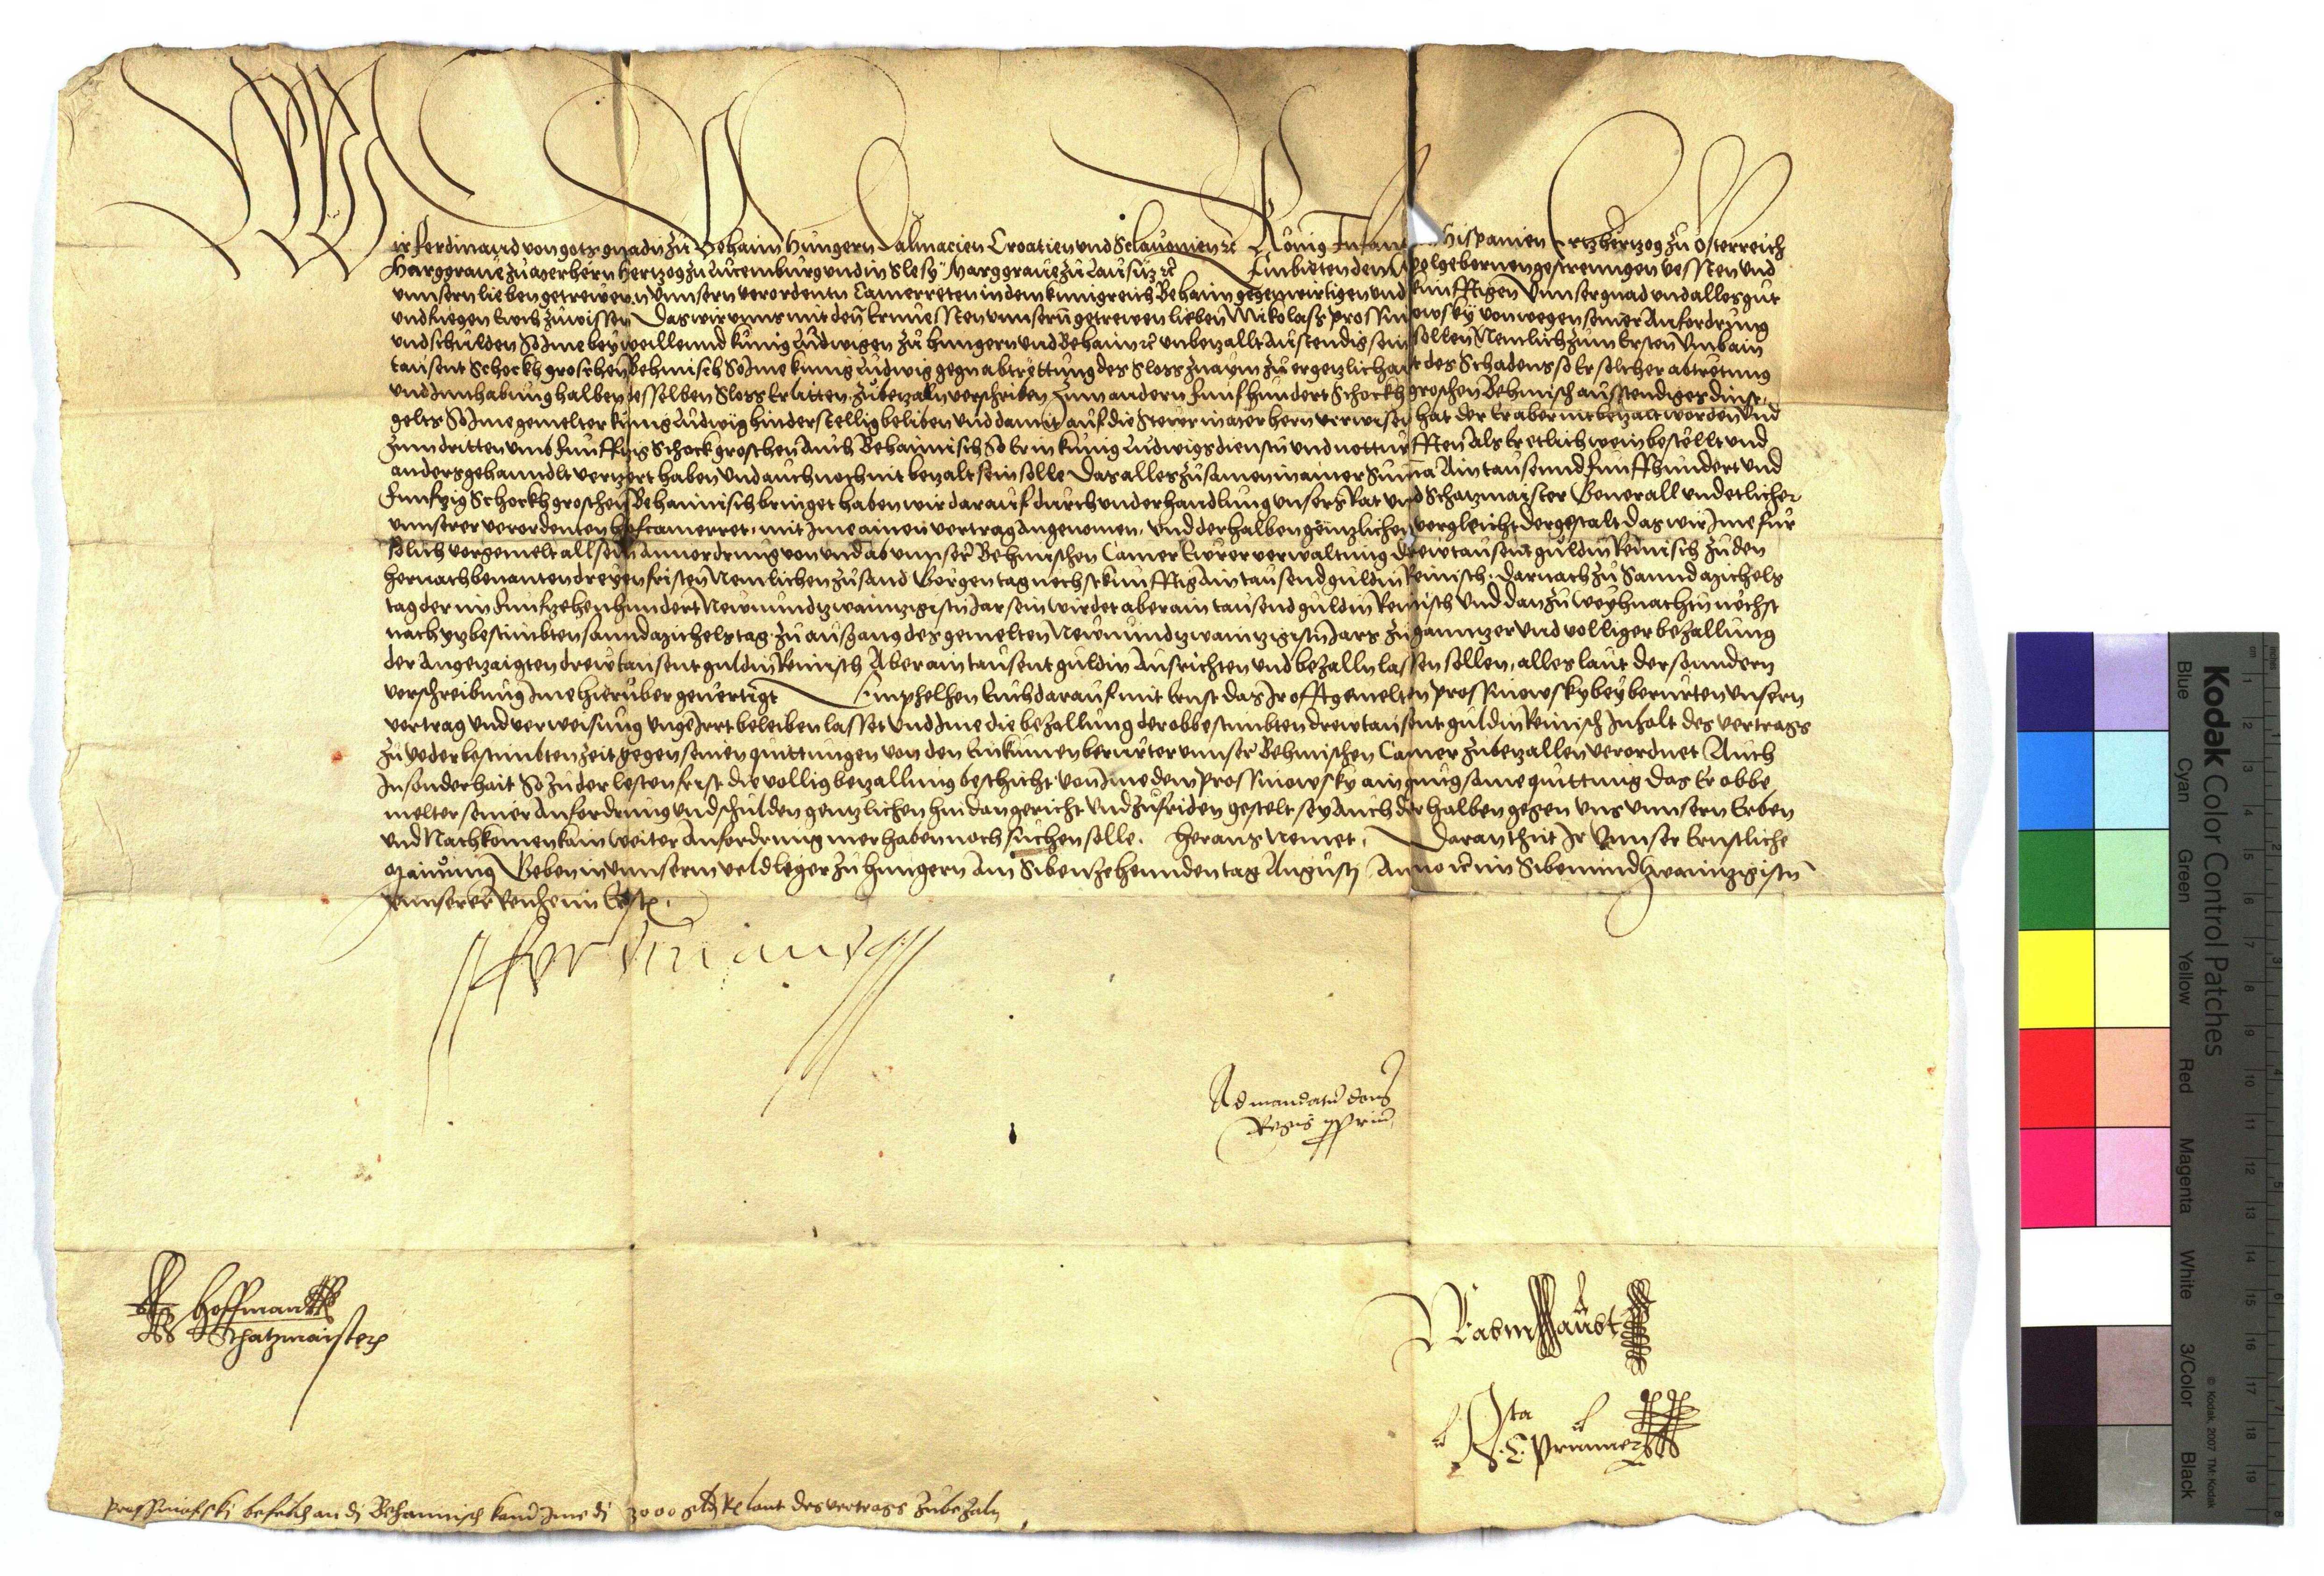 Wir Ferdinannd von gots gnadn zu Behaim Hungern Dalmacien Croatien und Sclavonien rc König Infan Hispanien Ertzhertzog zu Osterreich
Marggrave zu Merhern Hertzog zu Lucemburg und in Slesy Marggrave zu Lausitz rc Embieten den Wolgebornen gestrenngen vessten und
unnsern lieben getrewen N unnsern verordentn Camerreten in dem kunigreich Behaim gegenwirtigen und kunfftigen Unnser gnad und alles gut
und fuegen Euch zuwissen Das wir unns mit den Ernvessten unnserm getrewen lieben Mikolasch prossinowsky von wegen seiner Anfordrung
und schulden So Ime bey weillennd kunig Ludwigen zu Hungern und Behaim rc unbezallt Austendig sein sollen Nemlich zum Ersten Umb ain
tausent Schockh groschen Behmisch So Ime kunig Ludwig gegn abtrettung des Sloss Znaym zu ergetzlichait des Schadens so Er solcher abtretung
und Innhabung halben desselben Sloss Erlitten zubezaln verschriben Zum andern funfhundert Schockh groschen Behmisch ausstendiges dinst
gelts So Ime gemelter kunig Ludwig hinderstellig beliben und damit auf die Steur in Merhern verwisen hat der Er aber nit bezalt worden Und
zum dritten umb funfftzig Schock groschen Auch Behaimisch So Er in kunig Ludwigs diensten und notturfften Als Er etlich wein bestellt und
anders gehanndlt verzert haben und auch noch nit bezalt sein solle Das alles zusamen in ainer Suma Ain tausennd funffhundert und
funfzig Schockh groschen Behaimisch bringet haben wir darauf durch underhandlung unsers Rat und Schatzmaister General und etlicher
unnserer verordenten hofcamerret mit Ime ainen vertrag angenomen und derhalben genntzlichen vergleicht dergestalt das wir Ime fur
solich vorgemelt all sein Anvordrung von und ab unnser Behmischen Camer Ewrer verwaltung drewtausent guldin Reinisch zu den
hernach benanten dreyen fristen Nemlichen zu sand Görgen tag nechstkunfftig Ain tausend guldin Reinisch. Darnach zu Sannd Michels
tag der im funfzehenhundert Newnundzwainzigistn Jar sein wirdet aber ain tausend guldin Reinisch Und dan zu weyhnachtn nechst
nach yzbestimbten sannd Michels tag zu außgang des gemelten Newnundzwainzigistn Jars zu ganntzer und volliger bezallung
der Angezaigten drewtausent guldin Reinisch Aber ain tausent guldin Ausrichten und bezalln lassen sollen, alles laut der sonndern
verschreibung Ime hierüber gevertigt Emphelhen Euch darauf mit Ernst das Ir offtgemelten prossinowsky bey berurten unsern
vertrag und verweisung ungeirrt beleiben lasset Und Ime die bezallung der obbestimbten drewtausent guldin Reinisch Inhalt des vertrags
zu yeder bestimbten zeit gegen seinen quittungen von den Einkumen berurter unnser Behmischen Camer zubezallen verordnet Auch
Insonderhait So zu der lesten frist die vollig bezallung beschicht von Ime dem prossinowsky ain gnugsame quittung das Er obbe
melter seiner Anfordrung und schulden genntzlichen hindangericht und zufriden gestelt sey Auch derhalben gegen uns unnsern Erben
und Nachkomen kain weiter Anfordrung mer haben noch suchen solle. heraus Nemet. Daran thut Ir Unnser Ernstliche
Mainung Geben in unnserm veldleger zu Hungern Am Sibenzehennden tag Augusti Anno rc im Sibenundzwainzigistn
Unnserer Reiche im Ersten.
Ferdinand
Ad mandatu dni
Regis ppriu
Hoffman
Schatzmaister
Rabmhaubt
Sta
prinner
prossinofski befelch an di Behamisch kamer Ime di 3000 gld R laut des vertrags zubezaln